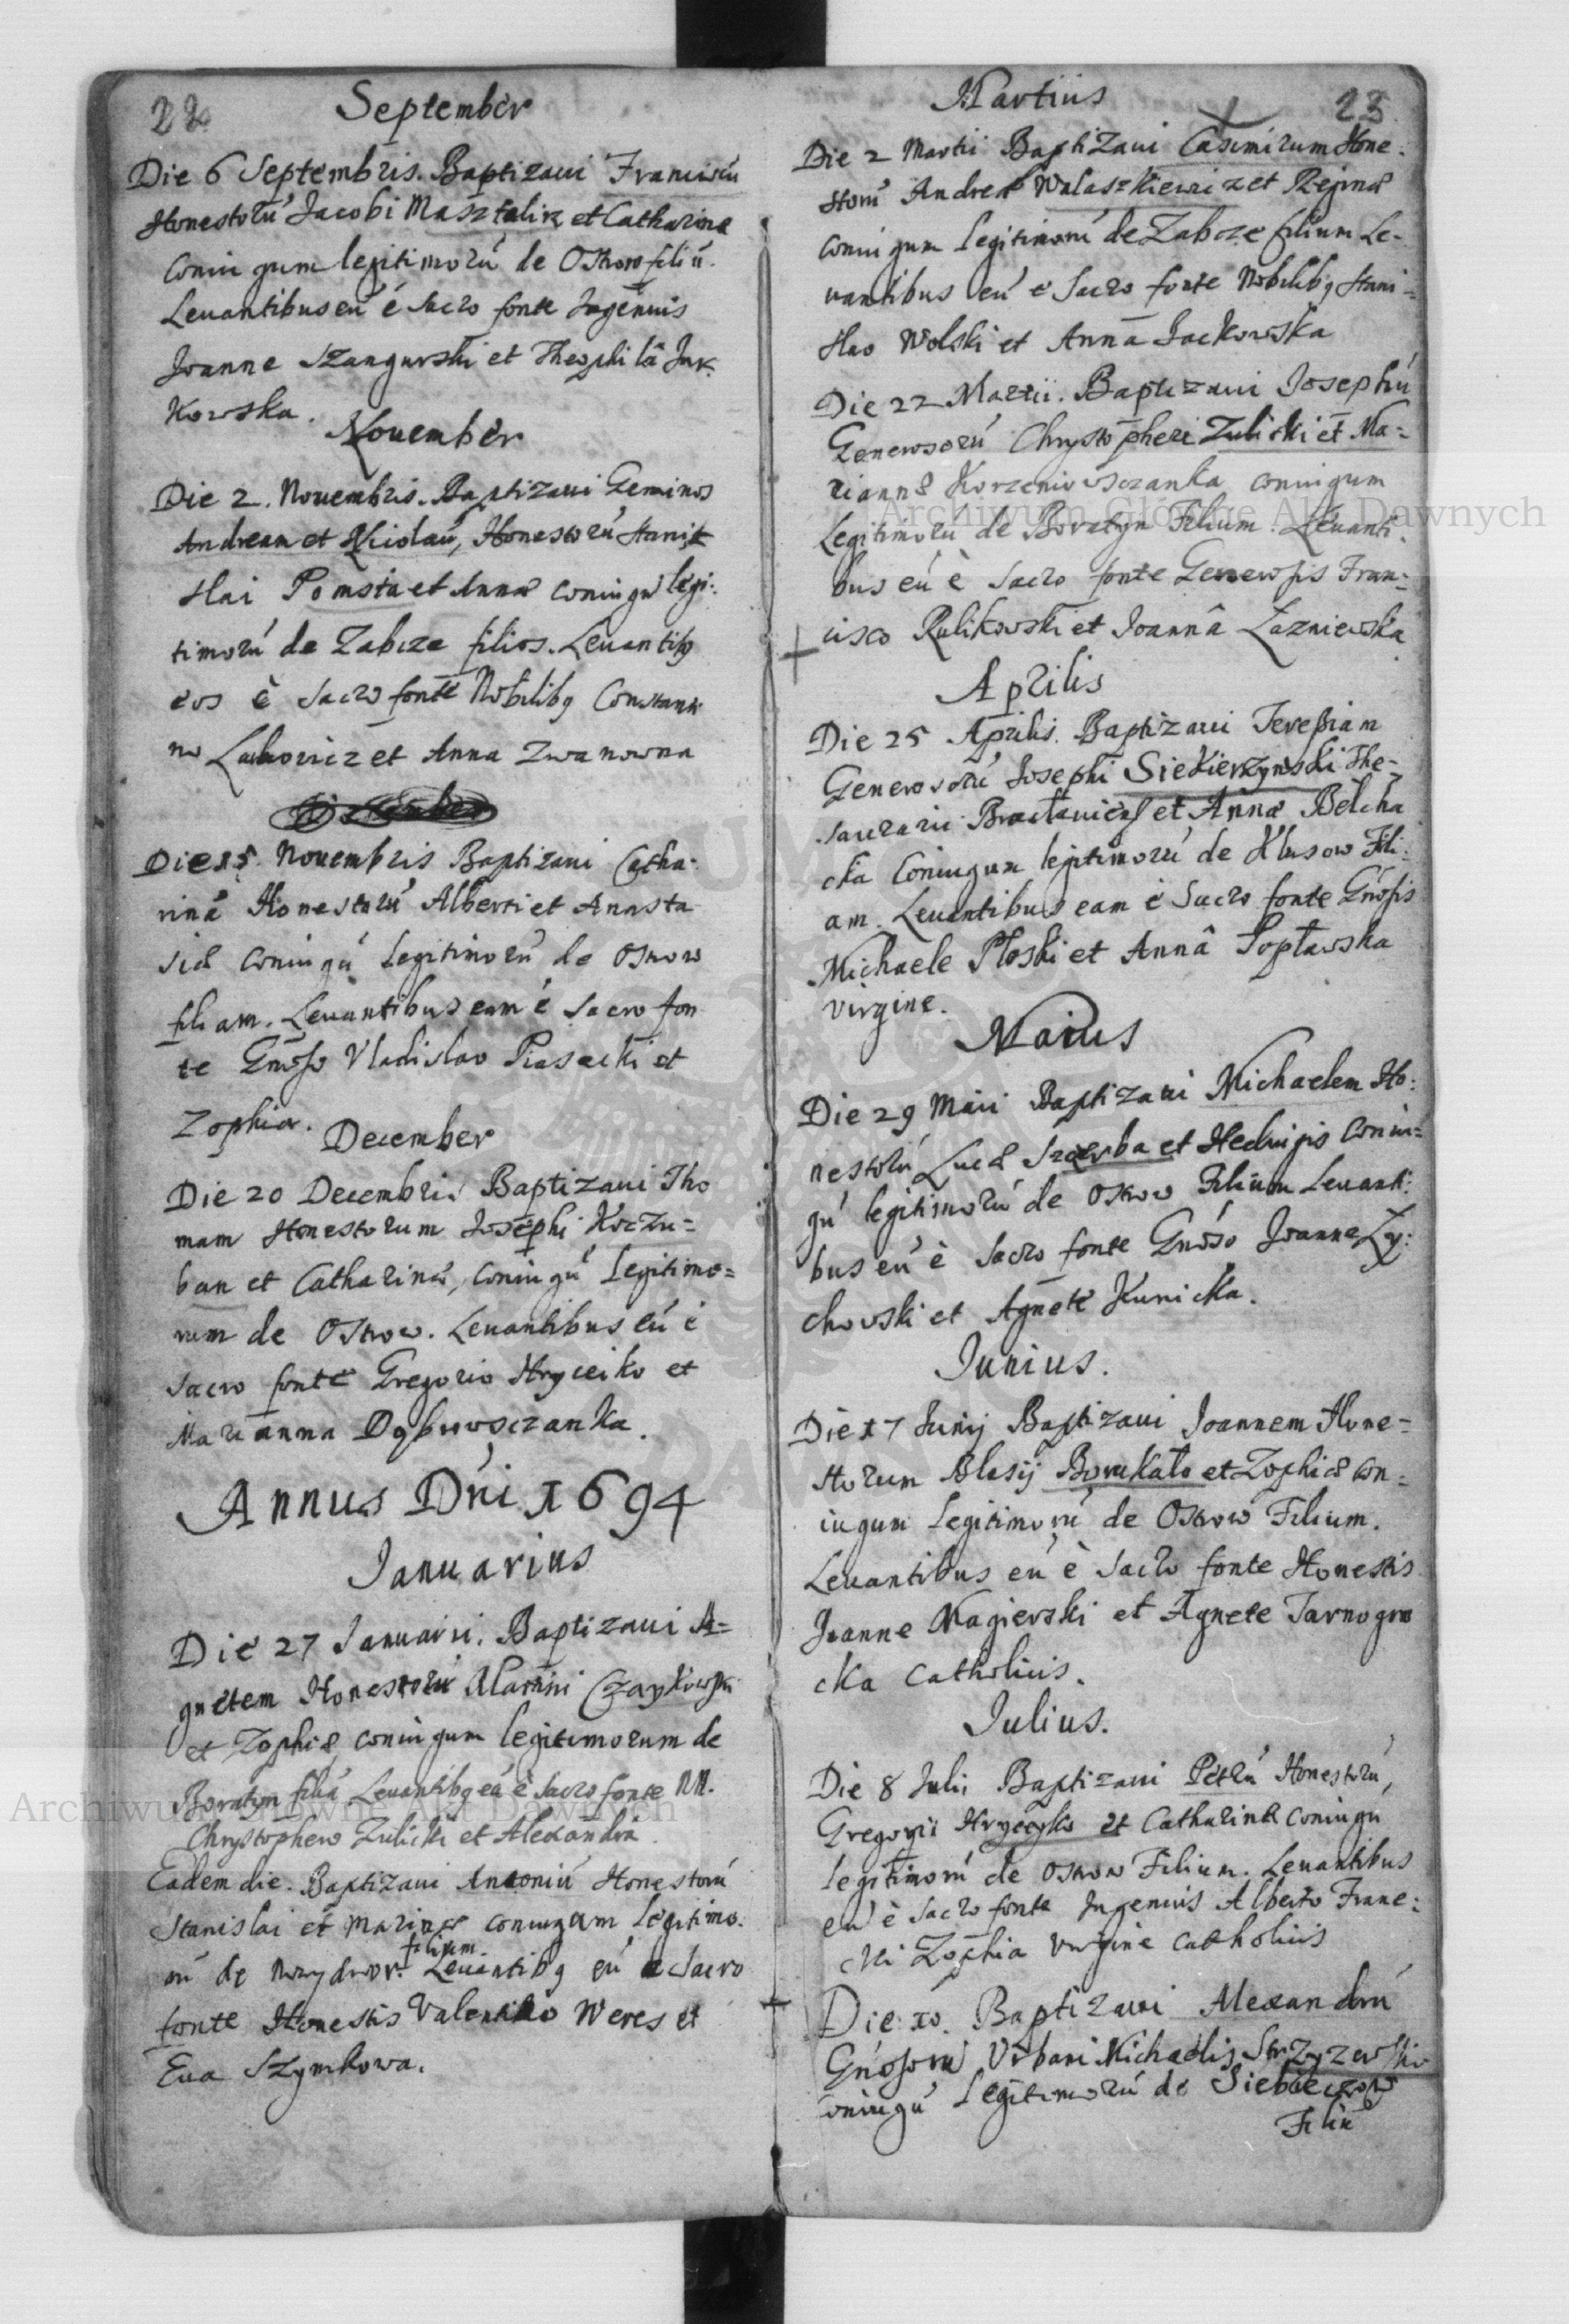 22
September
Die 6 Septembris. Baptizaui Franciscū
Honestorú Jacobi Masztalirz et Catharinæ
Coniugum legitimorú de Ostrow filiū.
Leuantibus eū é Sacro fonte Ingenuis
Joanne Szangurski et Theophilâ Juk
kowska.
Nouember
Die 2. Nouembris. Baptizaui Geminos
Andream et Nicolaū, Honestorú Stanis
slai Pomsta et Annæ Coniugú legi:
timorú de Zabcze filios. Leuantibg
eos è Sacro fonte Nobilibg Constanti
no Lachowicz et Anna Zwanowna
Die 15. Nouembris Baptizaui Catha-
rinā Honestorú Alberti et Anasta
siæ Coniugú Legitimorú de Ostrow
filiam. Leuantibus eam é Sacro fon
te Gnoso Vladislao Piasecki et
Zophia.
December
Die 20 Decembris Baptizaui Tho
mam Honestorum Josephi Koczu=
ban et Catharinæ, Coniugú Legitimo=
rum de Ostrow. Leuantibus eú é
Sacro fonte Gregorio Hryceiko et
Marianna Dębrowsczanka.
Annus Dni 1694
Ianuarius
Die 27 Januarii. Baptizaui A=
gnetem Honestorú Martini Czaykowski
et Zophiæ coniugum legitimorum de
Boratyn filiā Leuantibg eā è Sacro fonte NN.
Chrystophero Zulicki et Alexandra
Eadem die. Baptizaui Antoniú Honestorú
Stanislai et Marinæ coniugum Legitimo.
rú de Nowydwor. filium. Leuantibg eú e Sacro
fonte Honestis Valentino Weres et
Eua Szymkowa.
Martius
23
Die 2 Martii Baptizaui Casimirum Hone:
storú Andreæ Walaszkiewicz et Reginæ
coniugum legitimorú de Zabcze filium Le-
uantibus eú e Sacro fonte Nobilibg Stani=
slao Wolski et Anna Jackowska
Die 22 Martii. Baptizaui Josephú
Generosorú Chrystopheri Zulicki et Ma=
riannæ Korzeniowsczanka coniugum
Legitimorú de Boratyn Filium. Leuanti.
bus eú è Sacro fonte Generosis Fran=
cisco Rulikowski et Joannâ Łazniewska
Aprilis
Die 25 Aprilis. Baptizaui Teresiam
Generosorú Josephi Siekierzynski The=
saurarii Bracłauiens et Annæ Belcha
cka Coniugum legitimorú de Klusow Fili:
am. Leuantibus eam è Sacro fonte Gnosis
Michaele Płoski et Annâ Popławska
virgine.
Maius
Die 29 Maii Baptizaui Michaelem Ho:
nestorú Lucæ Szczerba et Heduigis Coniu=
gú legitimorú de Ostrow Filium Leuanti:
bus eú è Sacro fonte Gnoso Joanne Zy:
chowski et Agnete Kunicka.
Iunius.
Die 17 Junij Baptizaui Joannem Hone=
storum Blasij Borukało et Zophiæ con=
iugum Legitimorú de Ostrow Filium.
Leuantibus eú è Sacro fonte Honestis
Joanne Magierski et Agnete Tarnogro
cka Catholicis.
Iulius.
Die 8 Julii Baptizaui Petrú Honestorú,
Gregorii Hrycyko et Catharinæ coniugú
legitimorú de Ostrow Filium. Leuantibus
eú è Sacro fonte Ingenuis Alberto Franc:
cki Zophia Virgine Catholicis
Die 10. Baptizaui Alexandrú
Gnosorú Vrbani Michaelis Strzyzewski
coniugú Legitimorú de Siebeczow
Filiú
Archiwum Główne Akt Dawnych
Archiwum Główne Akt Dawnych